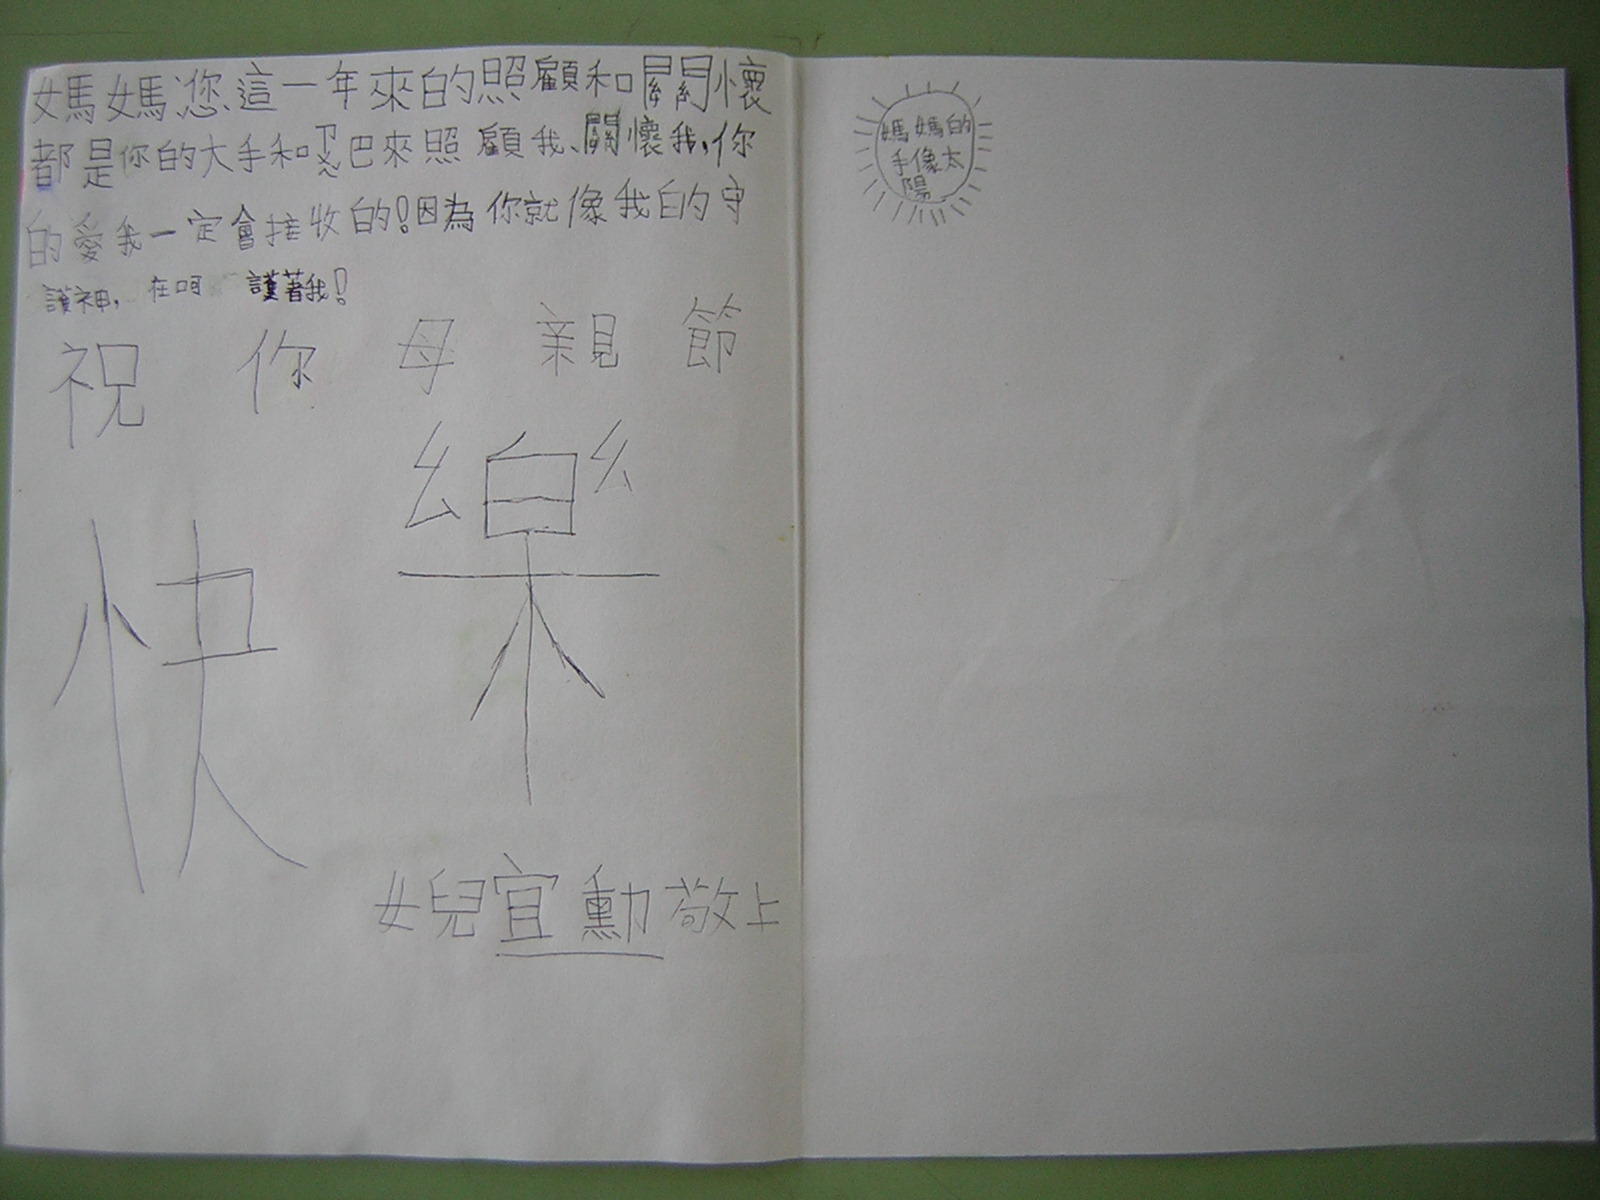 媽媽您這一年來的照顧和關關懷
都是你的大手和ㄗㄨㄟ巴來照顧我、關懷我,你
的愛我一定會接收的!因為你就像我的守
護神,在呵護著我!
祝你母親節
快樂
女兒宜勳敬上
媽媽的
手像太
陽